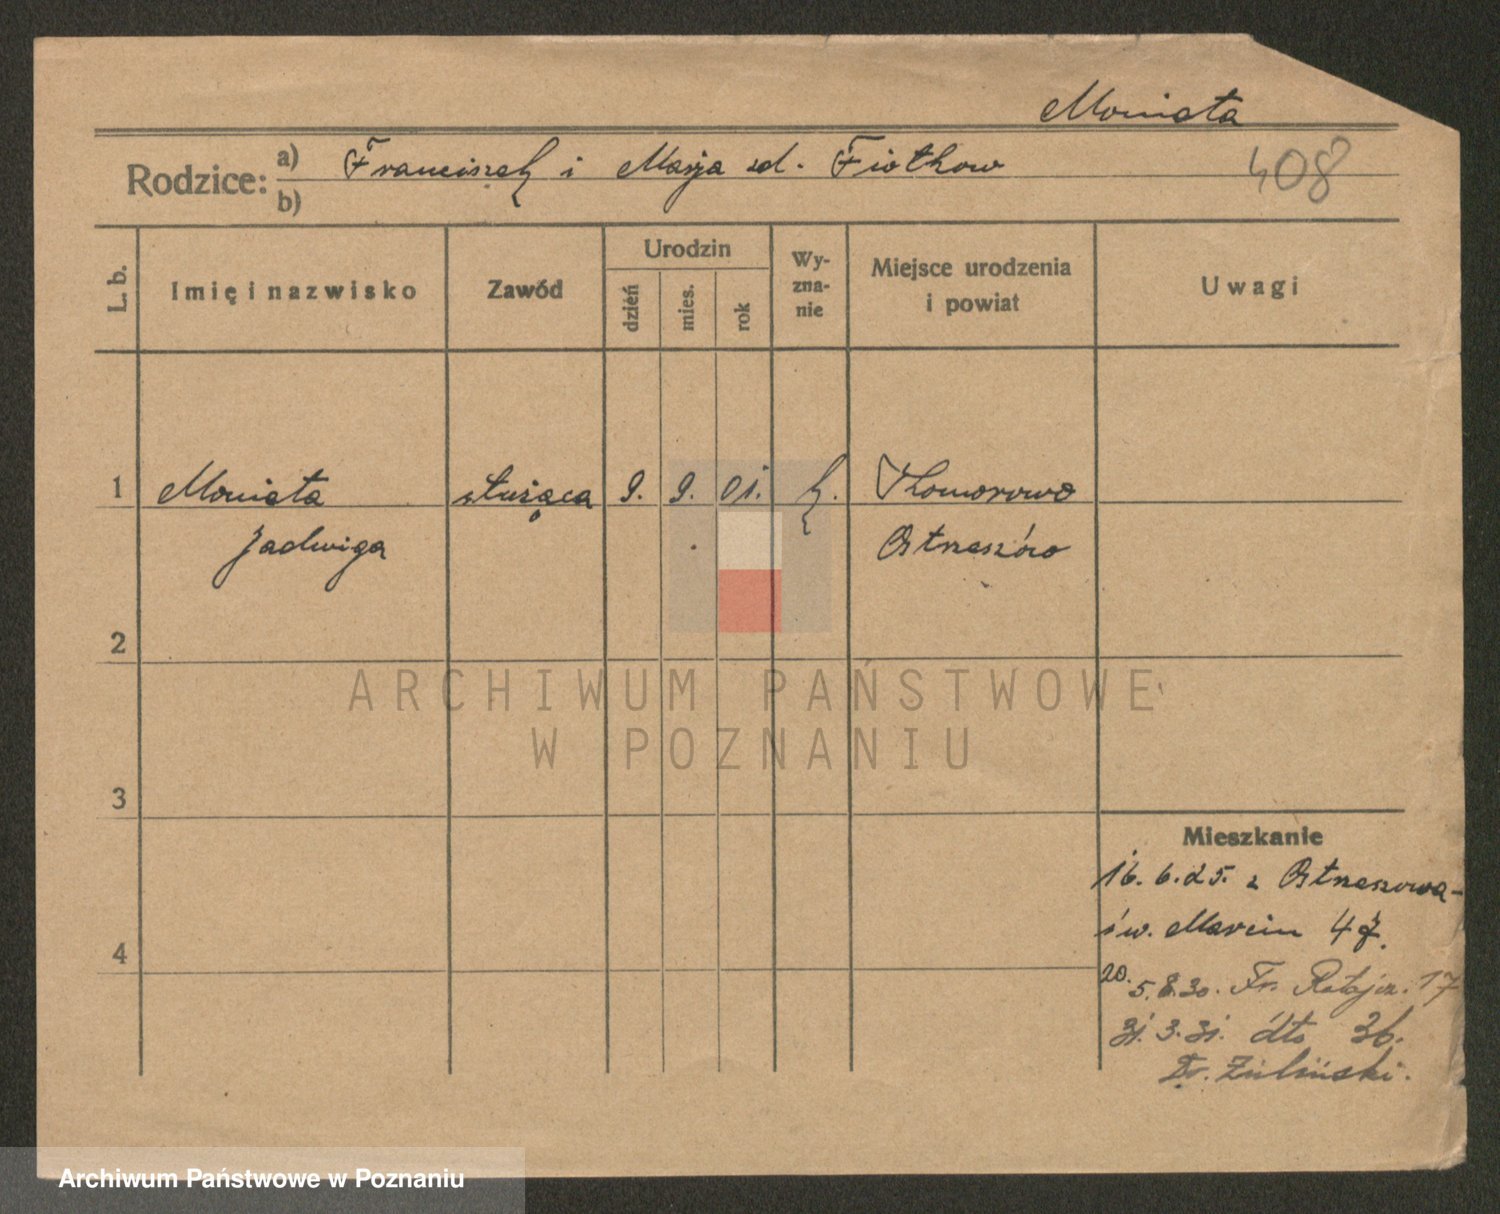 Moniata
Rodzice: a) Franciszek i Marja zd. Fiołkow
b)
408
L. b.
Imię i nazwisko
Zawód
Urodzin
dzień
mies.
rok
Wy-
zna-
nie
Miejsce urodzenia
i powiat
Uwagi
1 Moniata służąca 9. 9. 01. k. Komorowo
Jadwiga Ostrzeszów
2
ARCHIWUM PAŃSTWOWE
W POZNANIU
3
Mieszkanie
16. 6. 25. z Ostrzeszowa -
św. Marcin 47.
4
20. 5. 8. 30. Fr. Ratajcz. 17
31. 3. 31. dto 36.
Dr. Zieliński.
Archiwum Państwowe w Poznaniu